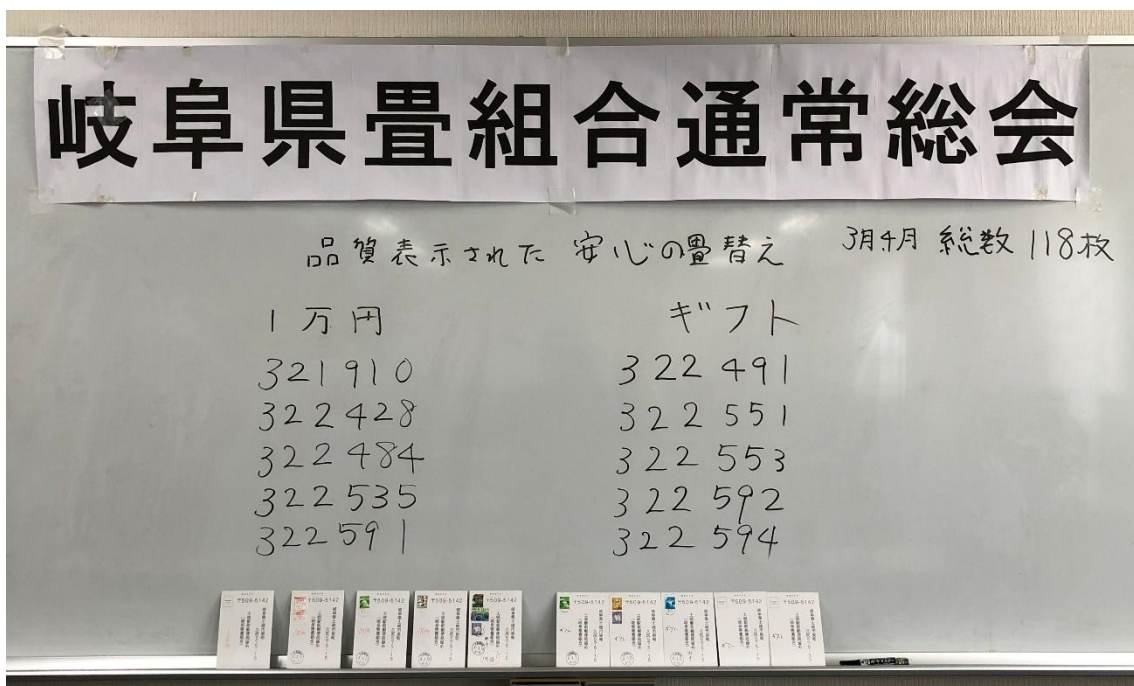 岐阜県畳組合通常総会
品質表示された 安心の畳替え
3月4月 総数 118枚
1万円
321910
322428
322484
322535
322591
ギフト
322491
322551
322553
322592
322594
〒509-5142
〒509-5142
〒509-5142
〒509-5142
〒509-5142
〒509-5142
〒509-5142
〒509-5142
〒509-5142
〒509-5142